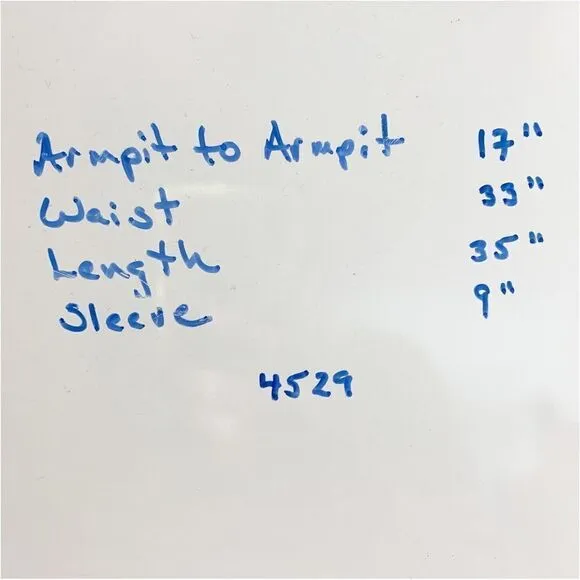 Armpit to Armpit 17"
Waist 33"
Length 35"
Sleeve 9"
4529